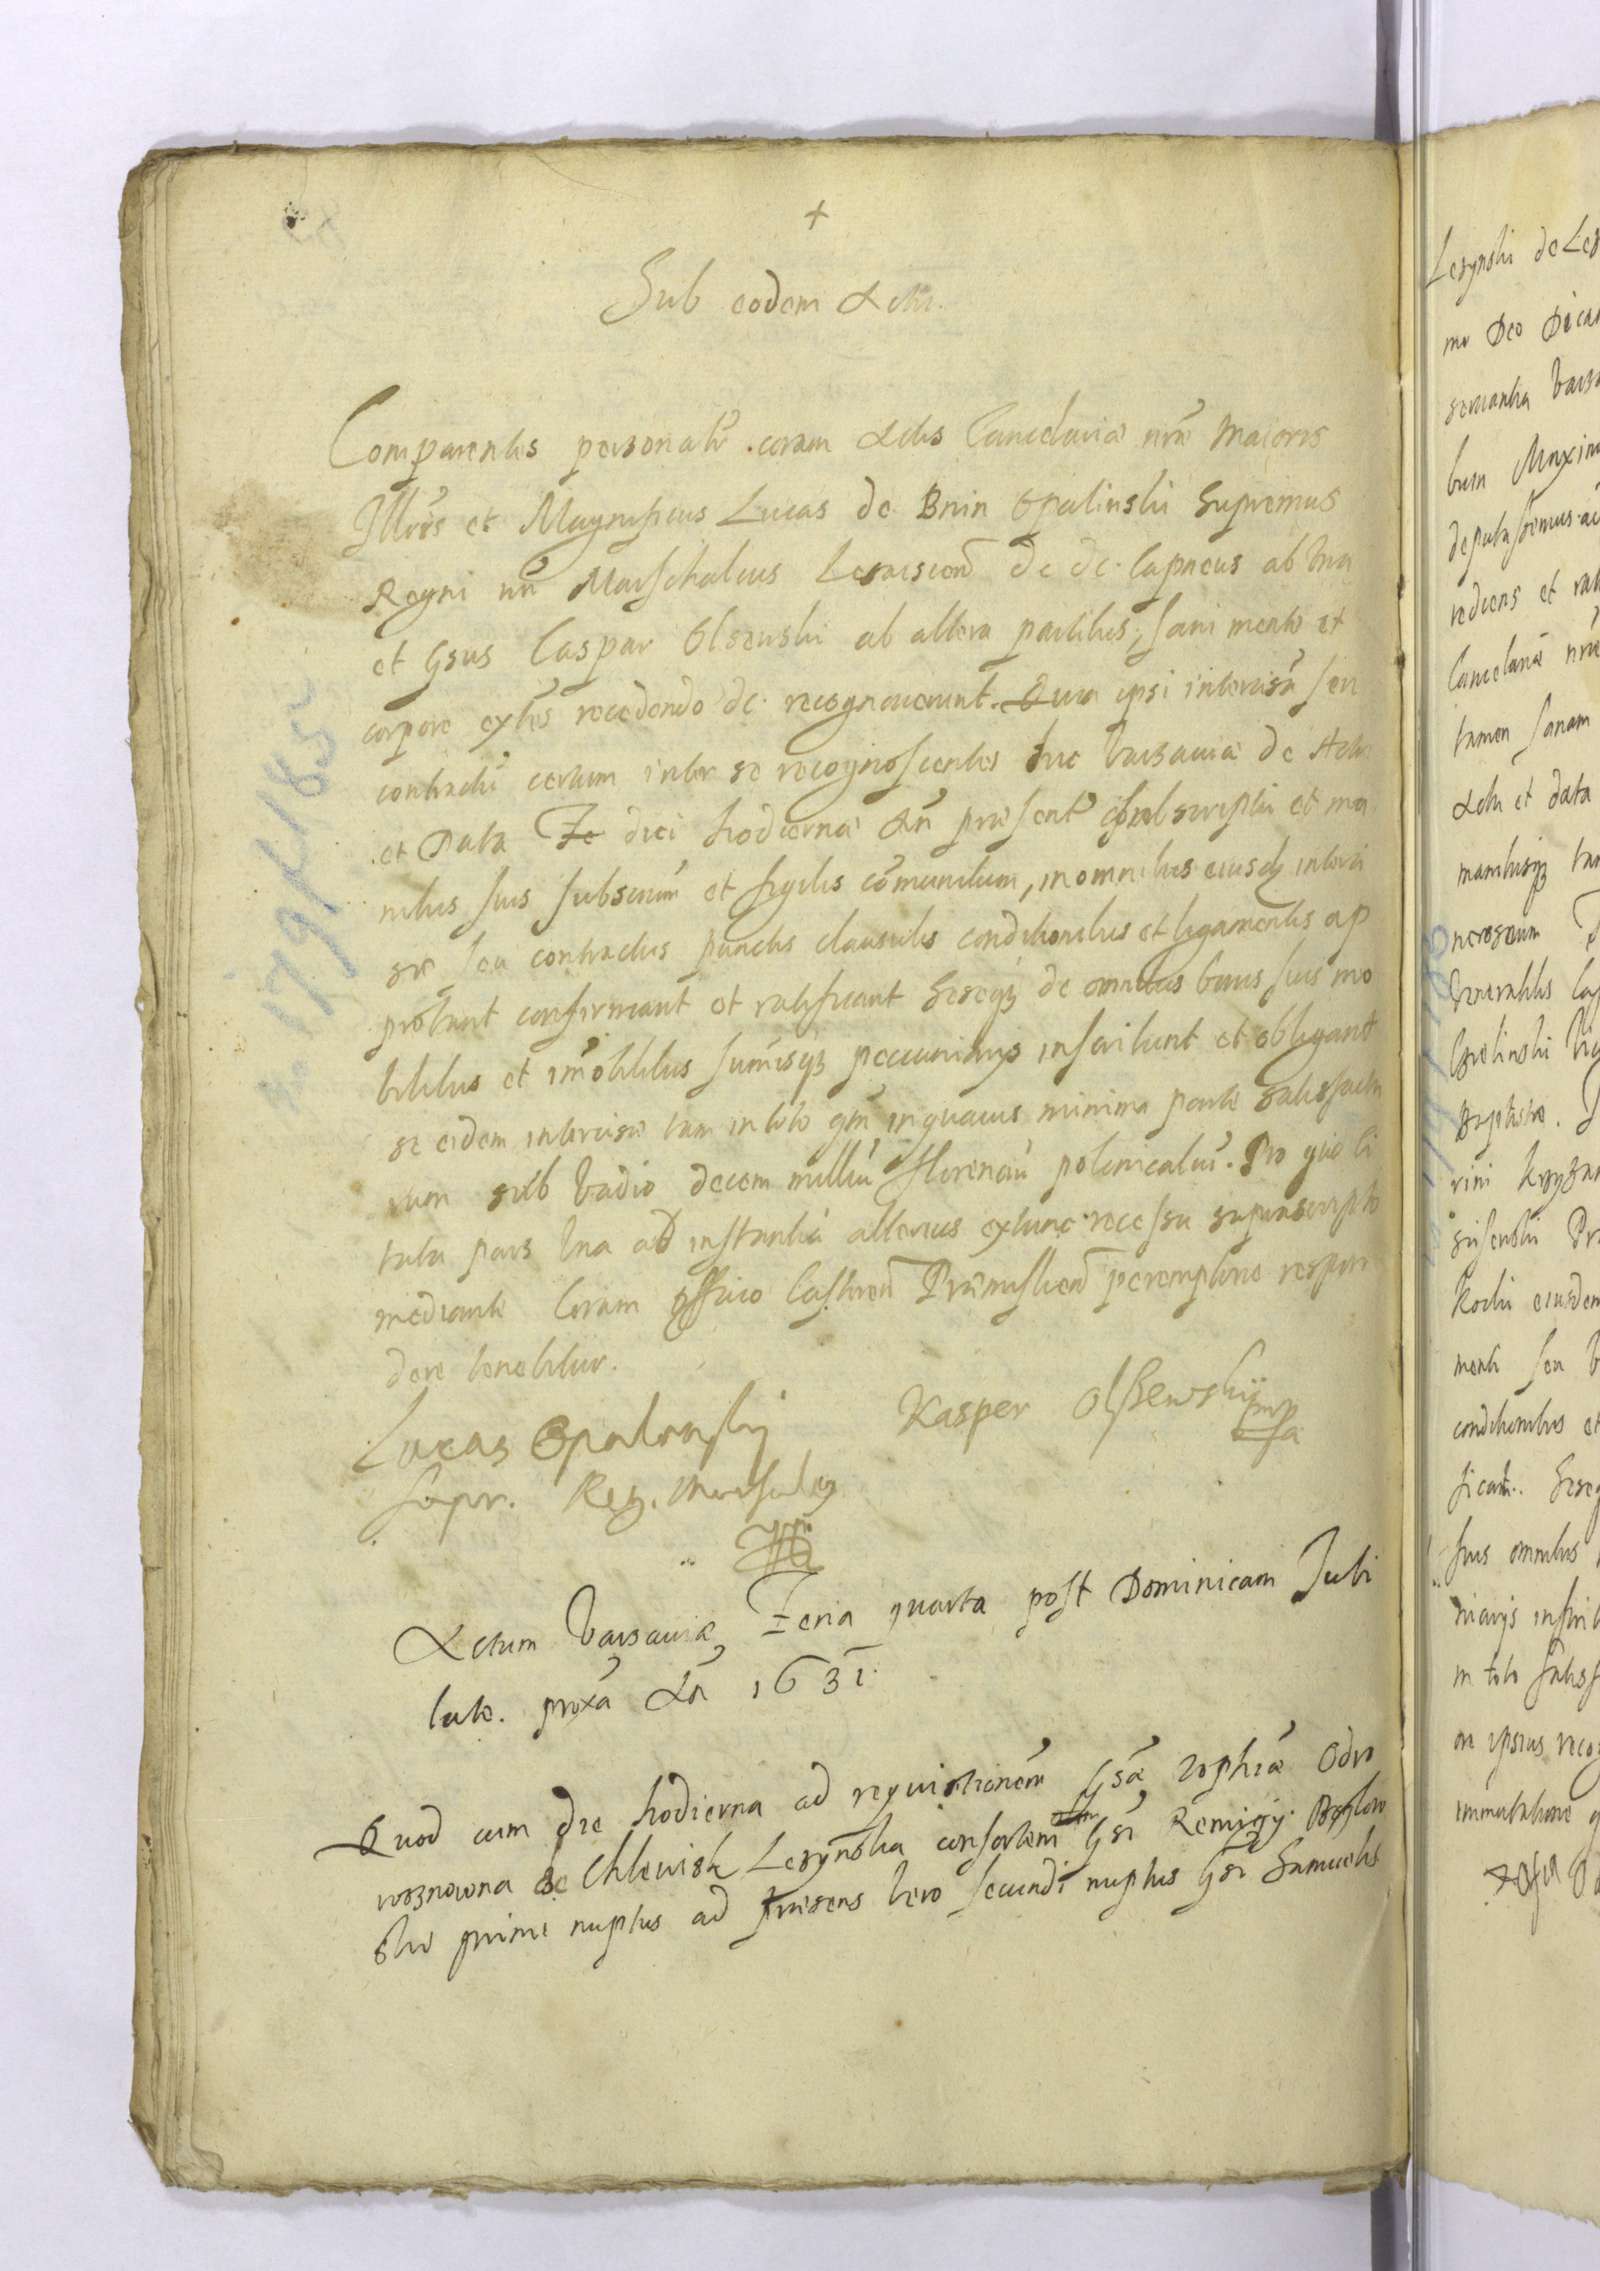 +
Sub eodem Actu.
Comparentes personalr coram Actis Cancelariæ nræ Maioris
Illris et Magnificus Lucas de Bnin Opalinski Supremus
Regni nri Marschalcus Lezaiscen &c &c. Capneus ab Vna
et Gsus Caspar Olsewski ab altera partibus, sani mente et
corpore extes recedendo &c. recognouerunt. Quia ipsi intercisã seu
contractũ certum inter se recognoscentes hic Varsauiæ de Actu
et Data diei hodiernæ An præsent subscriptu et ma
nibus suis subscrim et sigilis cõmunitum, in omnibus eiusdq interci
sæ seu contractus punctis clausulis conditionibus et ligamentis ap
probant confirmant et ratificant Seseq de omnibus bonis suis mo
bilibus et imobilibus sumisq pecuniarijs inscribunt et obligant
se eidem intercisæ tam in toto qm in quauis minima parte satisfactu
rum sub Vadio decem milliũ florenorũ polonicaliũ. Pro quo ci
tata pars Vna ad instantiã alterius extunc recessu suprascripto
mediante Coram officio Castren Præmislien peremptorie respon
dere tenebitur.
Lucas Opalensky Kasper Olszewskij mpa
Supr. Reg. Marsalcg
Actum Varsauiæ Feria quarta post Dominicam Iubi
late. proxa An 1631.
Quod cum die hodierna ad requisitionem Gsæ Zophiæ Odro
wąznowna de Chlewisk Lezynska consortem Gsi Remigij
primi nuptus ad præsens vero secundi nuptus Gsi Samuelis
179/185
Lezynski de Les
mu Deo Dicat
seruantia Varsa
bum Maxim
deputassemus ac
rediens et rat
Cancelariæ nræ
tamen sanam
Actu et data
manibusq tam
nerosorum
Venerabilis Cas
rini Krzyzan
Kochi eiusdem
menti seu
conditionibus et
ficat. Seseq
suis omnibus
niarijs inscrib
in toto satisf
ne ipsius recog
immutatione q